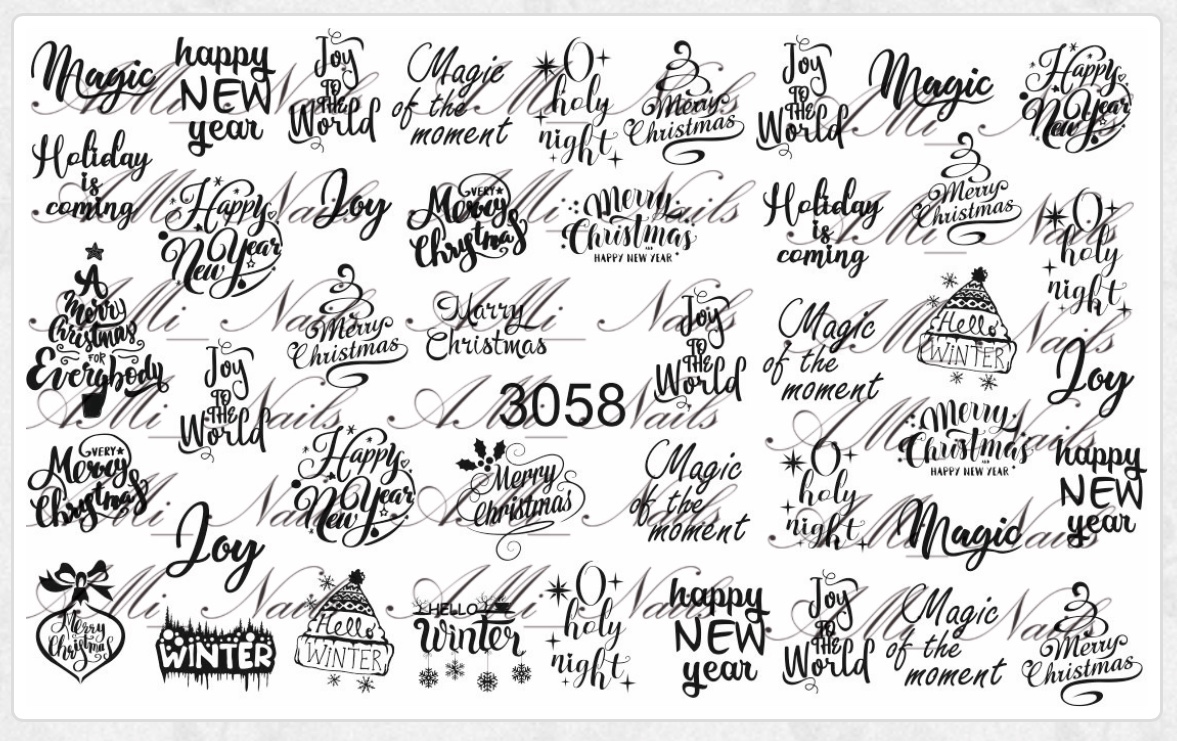 Magic
happy
NEW
year
Joy
TO
THE
World
Magic
of the
moment
O
holy
night
Merry
Christmas
Joy
TO
THE
World
Magic
Happy
New Year
Holiday
is
coming
Happy
New Year
Joy
VERY
Merry
Christmas
Merry
Christmas
HAPPY NEW YEAR
Holiday
is
coming
Merry
Christmas
O
holy
night
A
Merry
Christmas
FOR
Everybody
Joy
TO
THE
World
Merry
Christmas
Marry
Christmas
3058
Joy
TO
THE
World
Magic
of the
moment
Hello
WINTER
Joy
VERY
Merry
Christmas
Joy
Happy
New Year
Merry
Christmas
Magic
of the
moment
O
holy
night
Merry
Christmas
HAPPY NEW YEAR
Magic
happy
NEW
year
Merry
Christmas
WINTER
Hello
WINTER
HELLO
Winter
O
holy
night
happy
NEW
year
Joy
TO
THE
World
Magic
of the
moment
Merry
Christmas
AMi Nails